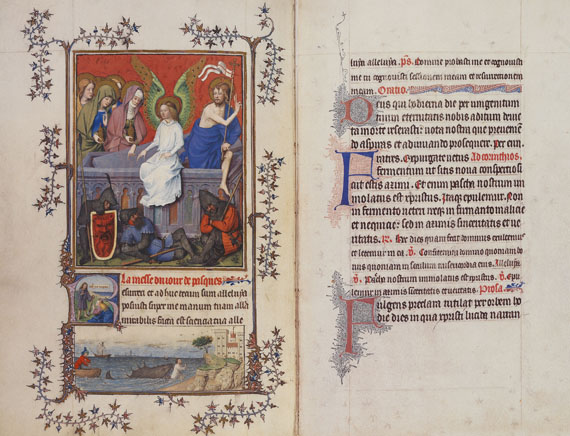 La messe du iour de pasques
esurrexi et adhuc tecum sum alleluya
posuisti super me manum tuam alla
mirabilis facta est sciencia alle
luya alleluya. ps. Domine probasti me et cognouisti
me tu cognouisti sessionem meam et resurrectionem
meam. Oratio.
Deus qui hodierna die per unigenitum
tuum eternitatis nobis aditum deuic
ta morte reserasti: uota nostra que preuenien
do aspiras et adiuuando prosequere. Per eun
Fratres. Expurgate uetus Ad corinthios.
fermentum ut sitis noua conspersio
sicut estis azimi. Et enim pascha nostrum im
molatus est xpistus. Itaqz epulemur. Non
in fermento ueteri neqz in fermento malicie
et nequicie: sed in azimis sinceritatis et ue
ritatis. Hec dies quam fecit dominus exultemus
et letemur in ea. V. Confitemini domino quoniam bo
nus quoniam in seculum misericordia eius. Alleluya.
V. Pascha nostrum immolatus est xpistus. V. Epu
lemur in azimis sinceritatis et ueritatis. Prosa.
Fulgens preclara rutilat per orbem ho
die dies in qua xpisti lucida narran